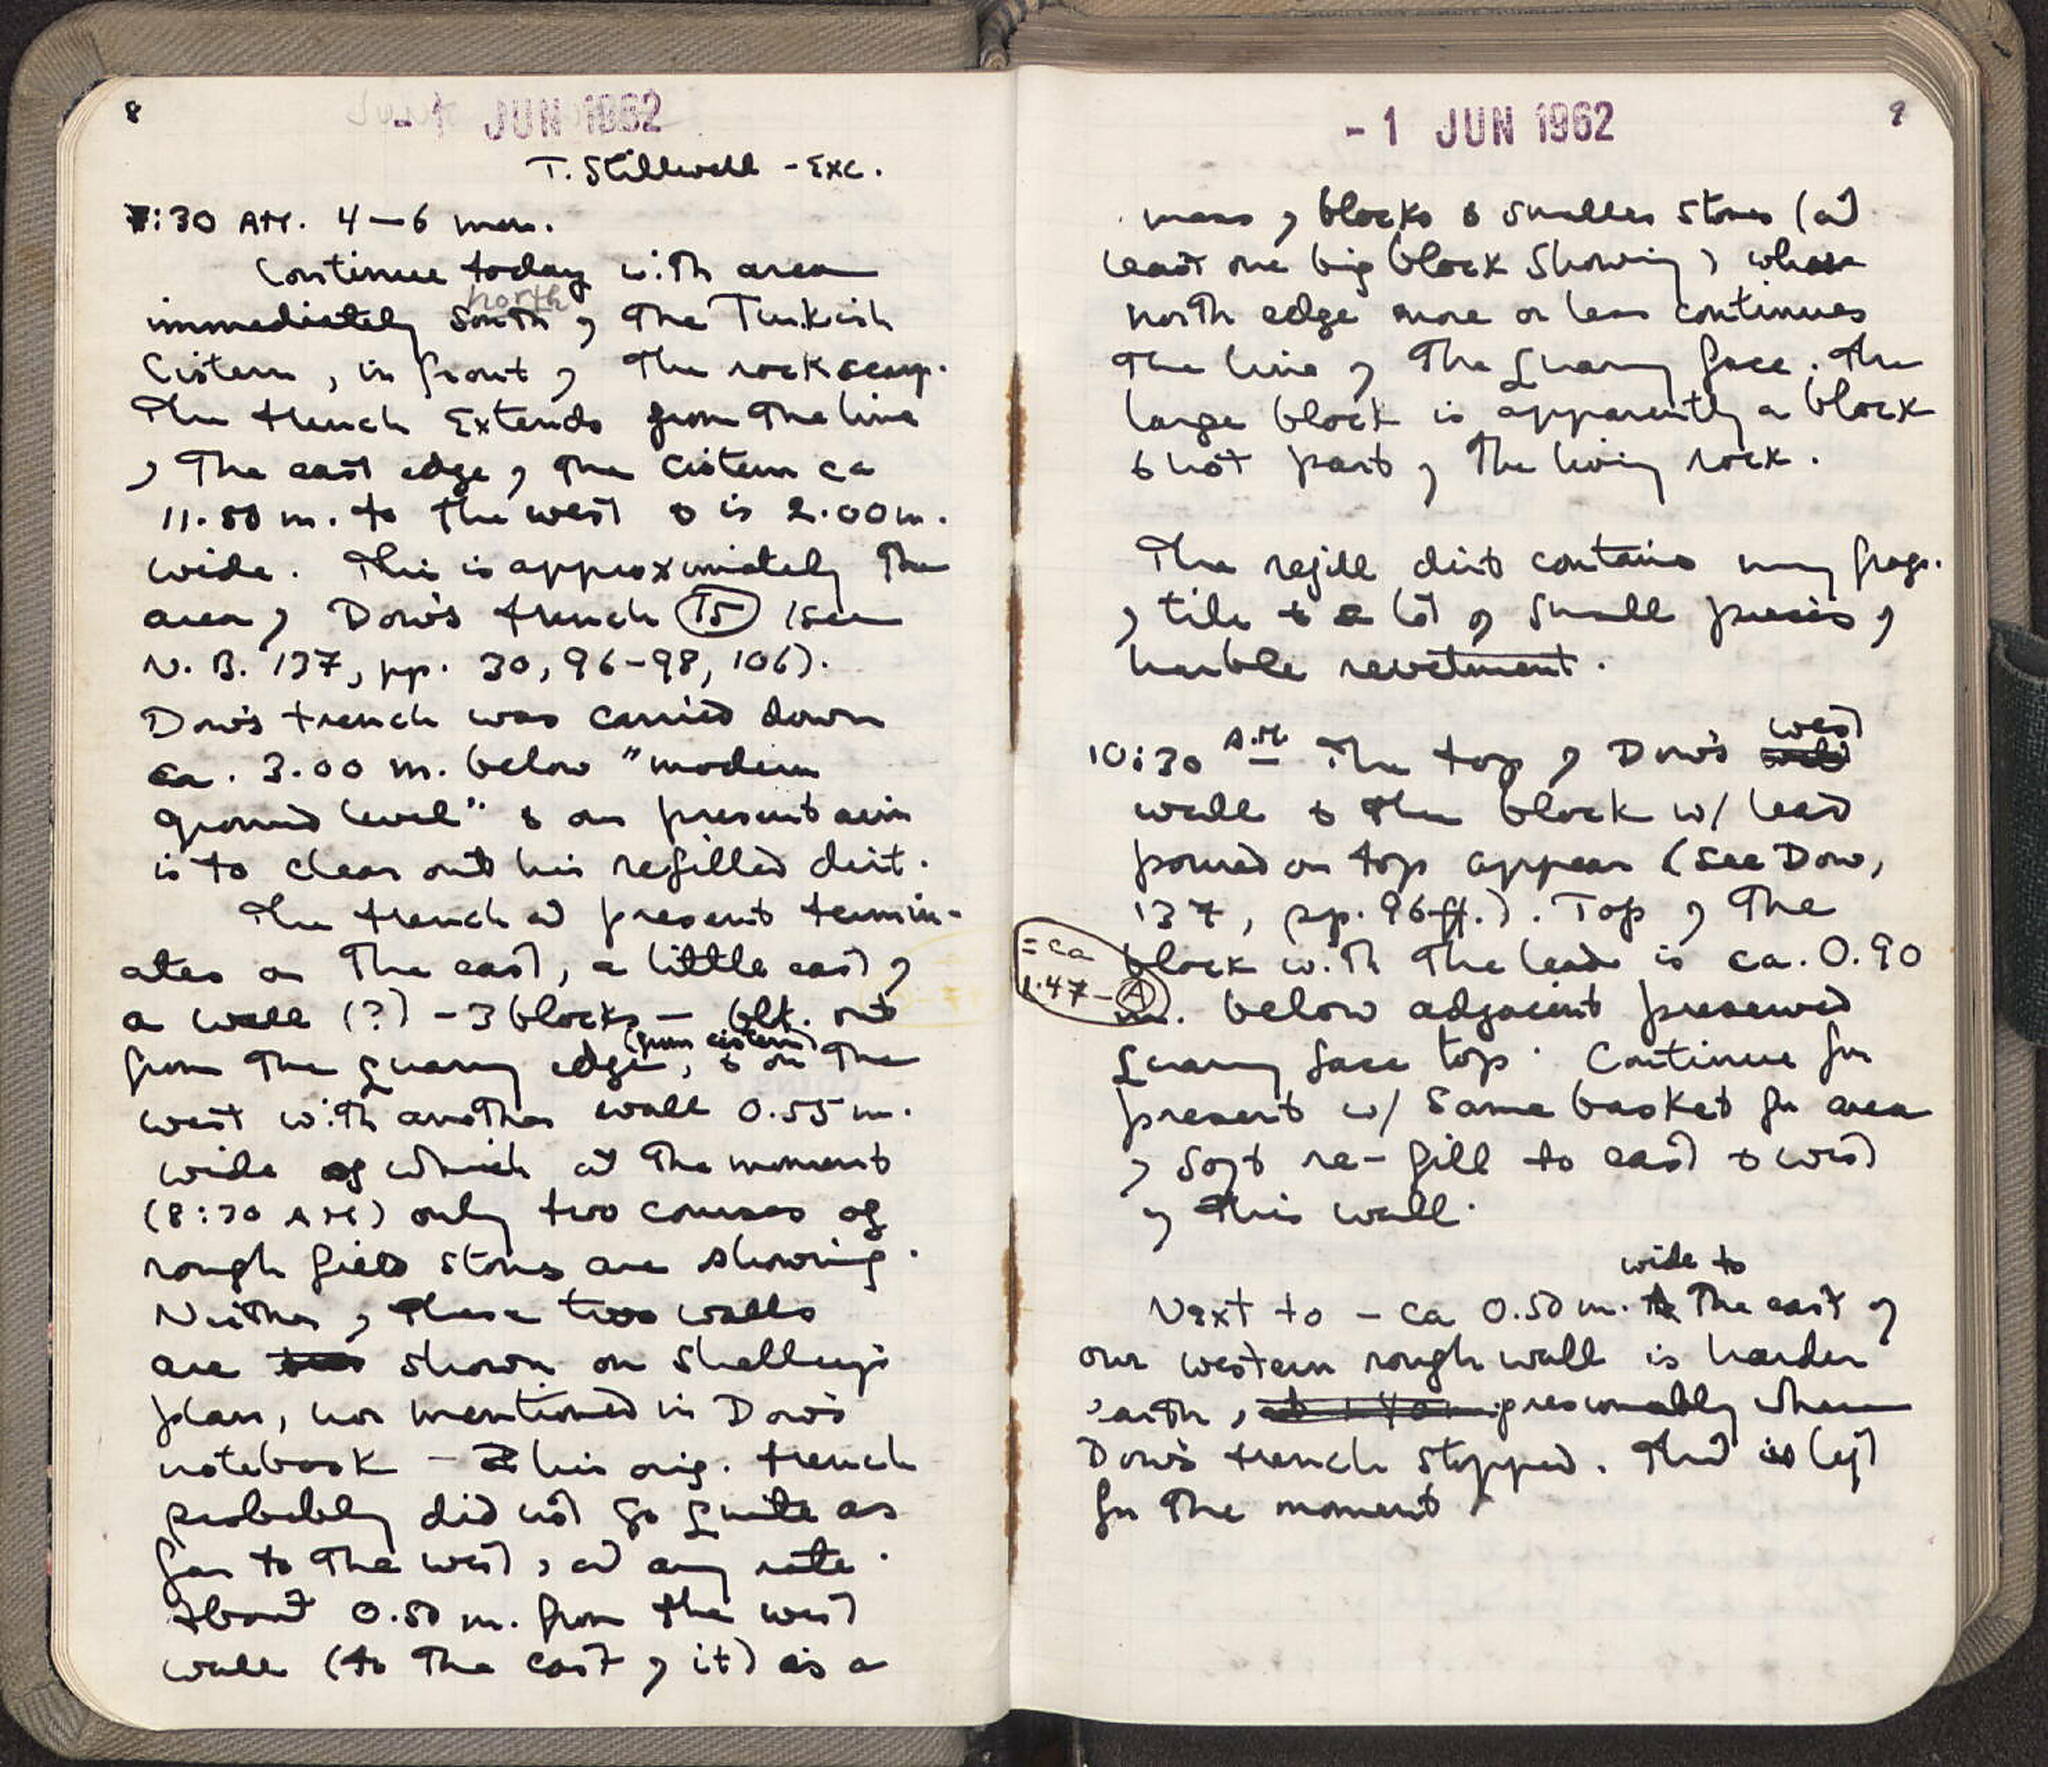 8
- 1 JUN 1962
T. Stillwell - Exc.
7:30 AM. 4-6 men.
Continue today with area
north
immediately South of the Turkish
Cistern, in front of the rock scarp.
The trench Extends from the line
of the east edge of the cistern ca
11.50 m. to the west & is 2.00 m.
wide. This is approximately the
area of Dow's trench T5 (see
N.B. 137, pp. 30, 96-98, 106).
Dow's trench was carried down
ca. 3.00 m. below "modern
ground level" & our present aim
is to clear out his refilled dirt.
The trench at present termin-
ates on the east, a little east of
a wall (?) - 3 blocks - blt. out
(from cistern)
from the quarry edge, & on the
west with another wall 0.55 m.
wide of which at the moment
(8:30 AM) only two courses of
rough field stones are showing.
Neither of these two walls
are shown on Shelley's
plan, nor mentioned in Dow's
notebook - his orig. trench
probably did not go quite as
far to the west, at any rate.
About 0.50 m. from the west
wall (to the east of it) is a
9
- 1 JUN 1962
mass of blocks & smaller stones (at
least one big block showing) whose
north edge more or less continues
the line of the quarry face. The
large block is apparently a block
& not part of the living rock.
The refill dirt contains many frags.
of tile & a lot of small pieces of
marble revetment.
west
10:30 A.M. The top of Dow's
wall & the block w/ lead
poured on top appear (see Dow,
137, pp. 96ff.). Top of the
block with the lead is ca. 0.90
= ca
1.47 - A
m. below adjacent preserved
quarry face top. Continue for
present w/ same basket for area
of soft re-fill to east & west
of this wall.
wide to
Next to - ca 0.50 m. the east of
our western rough wall is harder
earth, presumably where
Dow's trench stopped. This is left
for the moment.